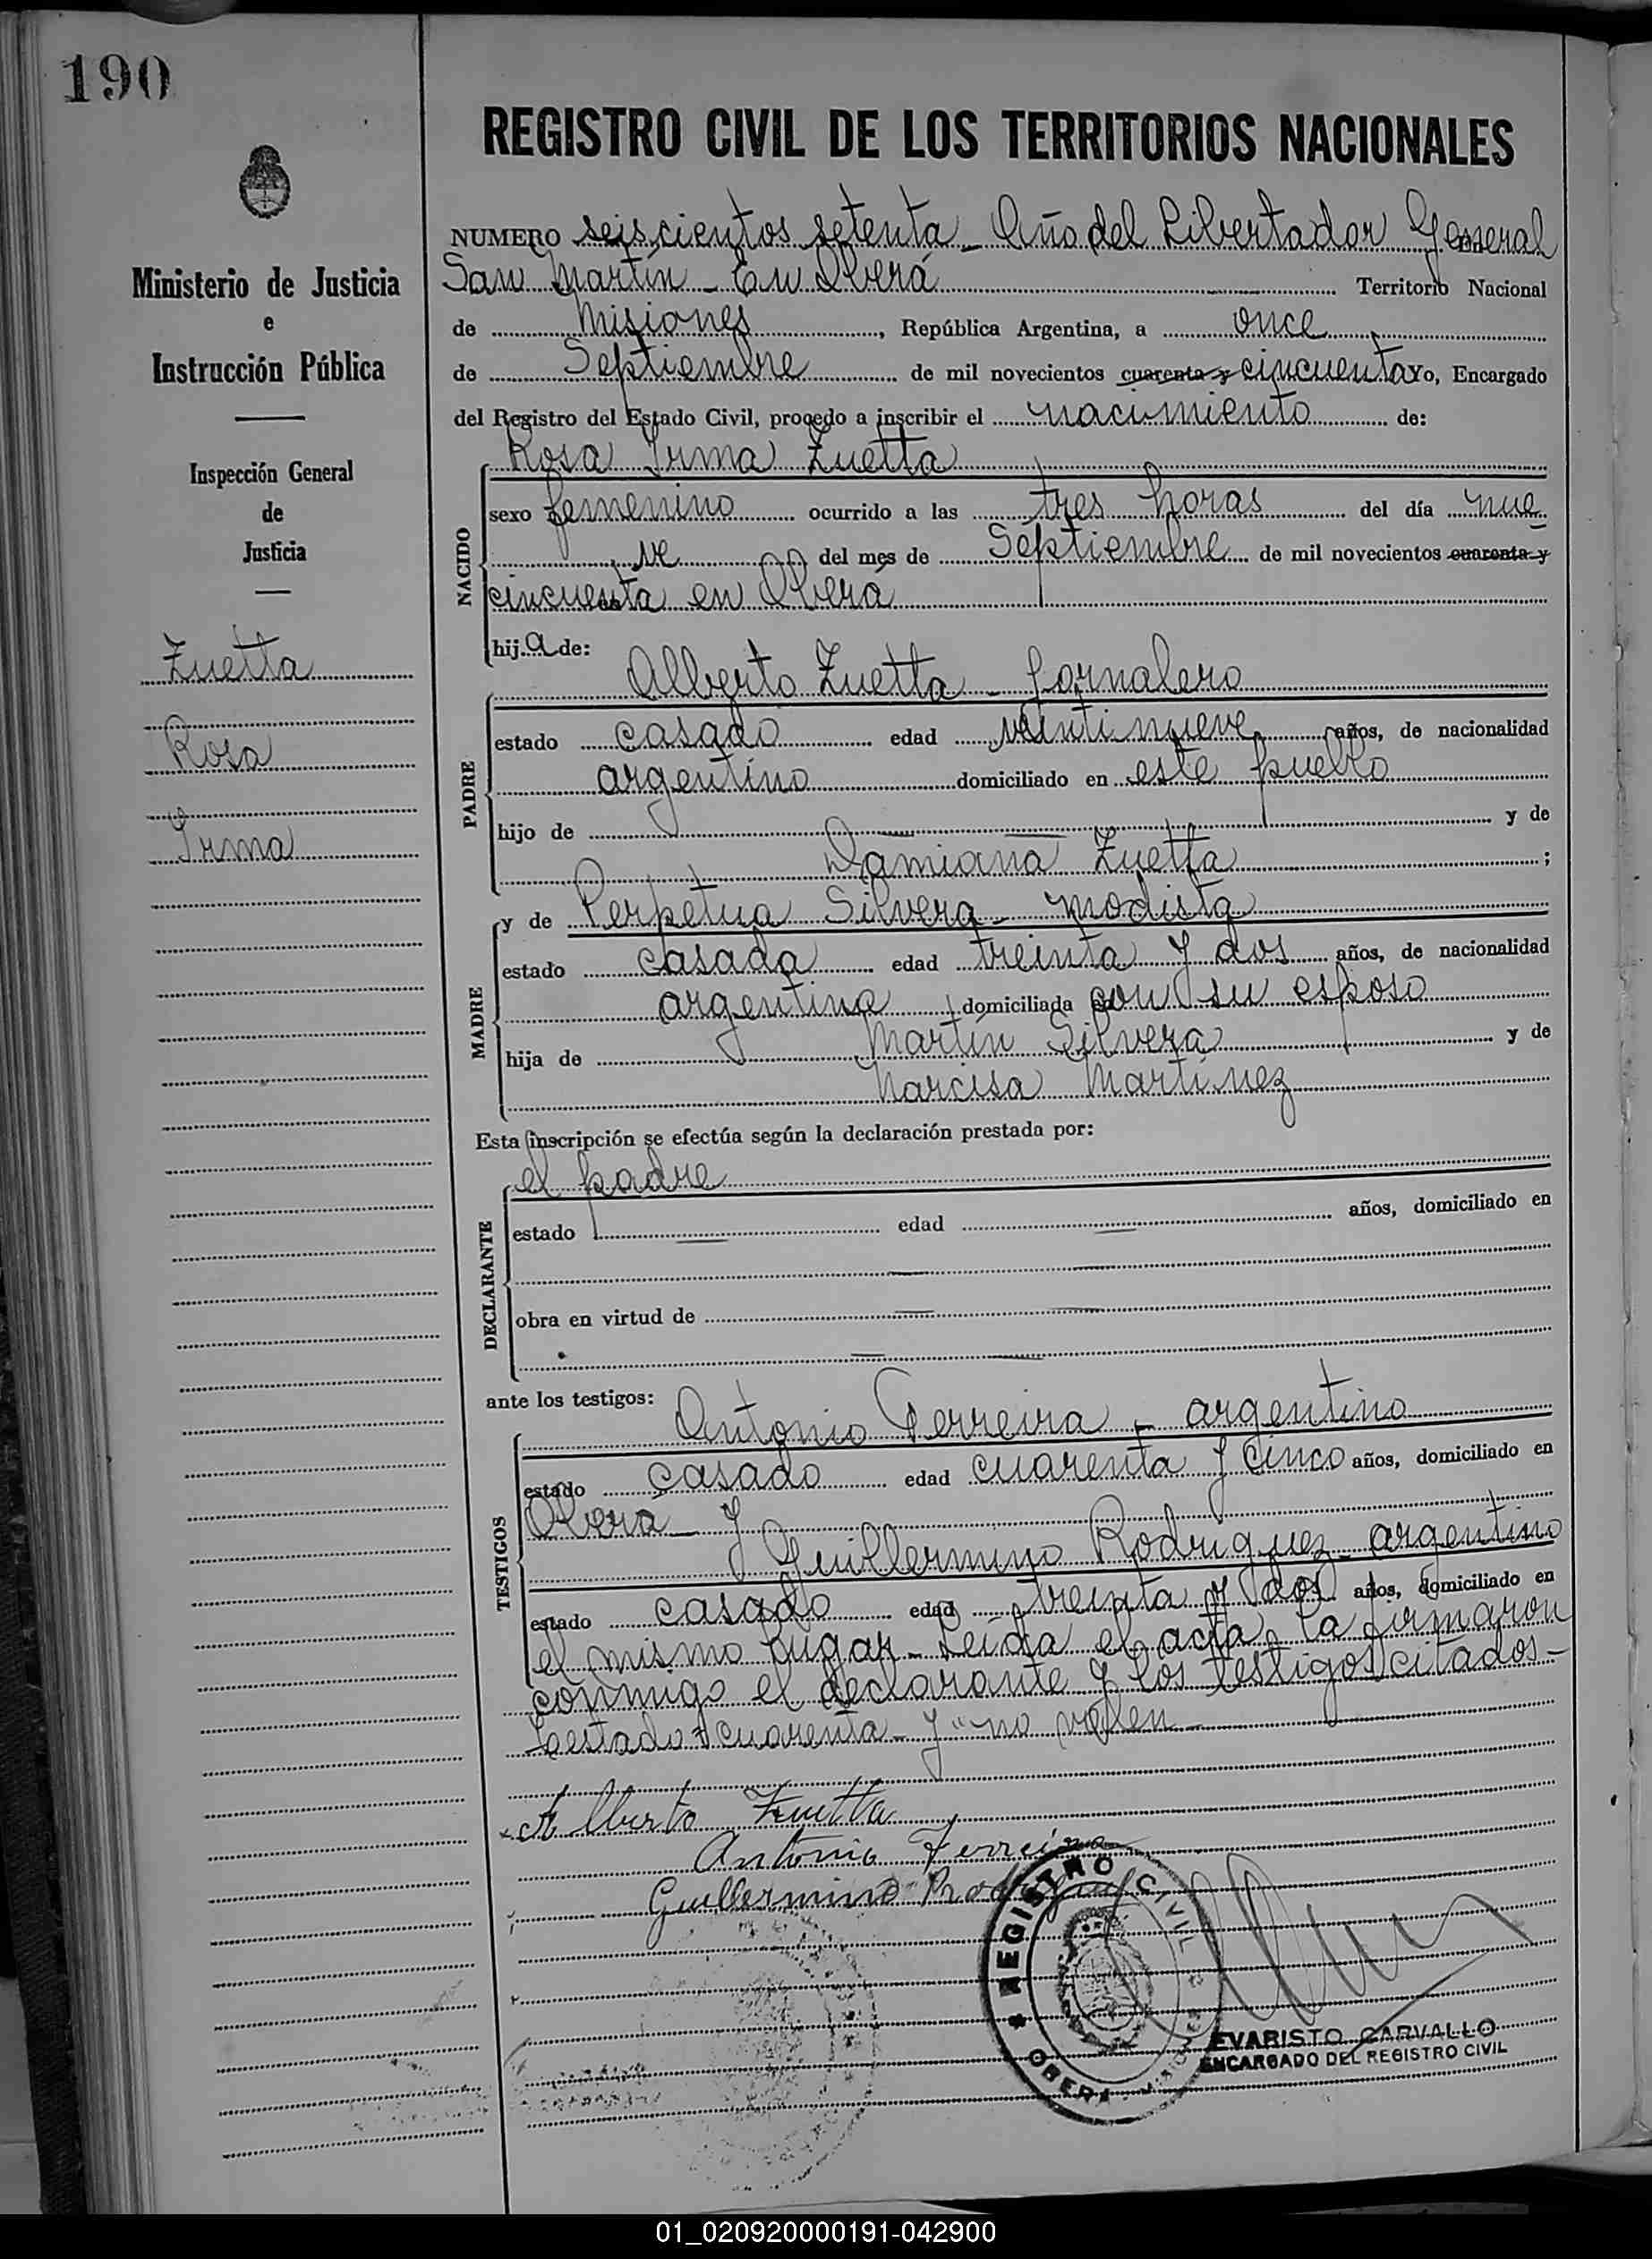 190
Ministerio de Justicia
e
Instrucción Pública
Inspección General
de
Justicia
Zuetta
Rosa
Irma
REGISTRO CIVIL DE LOS TERRITORIOS NACIONALES
NUMERO seiscientos setenta - Año del Libertador General
San Martín - En Oberá Territorio Nacional
de Misiones, República Argentina, a once
de Septiembre de mil novecientos cuarenta y cincuenta Yo, Encargado
del Registro del Estado Civil, procedo a inscribir el nacimiento de:
Rosa Irma Zuetta
NACIDO
sexo femenino ocurrido a las tres horas del día nue
ve del mes de Septiembre de mil novecientos cuarenta y
cincuenta en Oberá
hija de:
Alberto Zuetta - Jornalero
PADRE
estado casado edad veintinueve años, de nacionalidad
argentino domiciliado en este pueblo
hijo de y de
Damiana Zuetta ;
y de Perpetua Silvera - modista
MADRE
estado casada edad treinta y dos años, de nacionalidad
argentina domiciliada con su esposo
hija de Martín Silvera y de
Narcisa Martinez
Esta inscripción se efectúa según la declaración prestada por:
el padre
DECLARANTE
estado edad años, domiciliado en
obra en virtud de
ante los testigos:
Antonio Ferreira - argentino
TESTIGOS
estado casado edad cuarenta y cinco años, domiciliado en
Oberá - y
Guillermino Rodriguez - argentino
estado casado edad treinta y dos años, domiciliado en
el mismo lugar - Leída el acta, la firmaron
conmigo el declarante y los testigos citados -
Lo estado "cuarenta - y" no valen -
Alberto Zuetta
Antonio Ferreira
Guillermino Rodriguez
REGISTRO CIVIL
OBERA MISIONES
EVARISTO CARVALLO
ENCARGADO DEL REGISTRO CIVIL
01_020920000191-042900